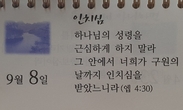 인치심
하나님의 성령을
근심하게 하지 말라
그 안에서 너희가 구원의
날까지 인치심을
받았느니라 (엡 4:30)
9월 8일